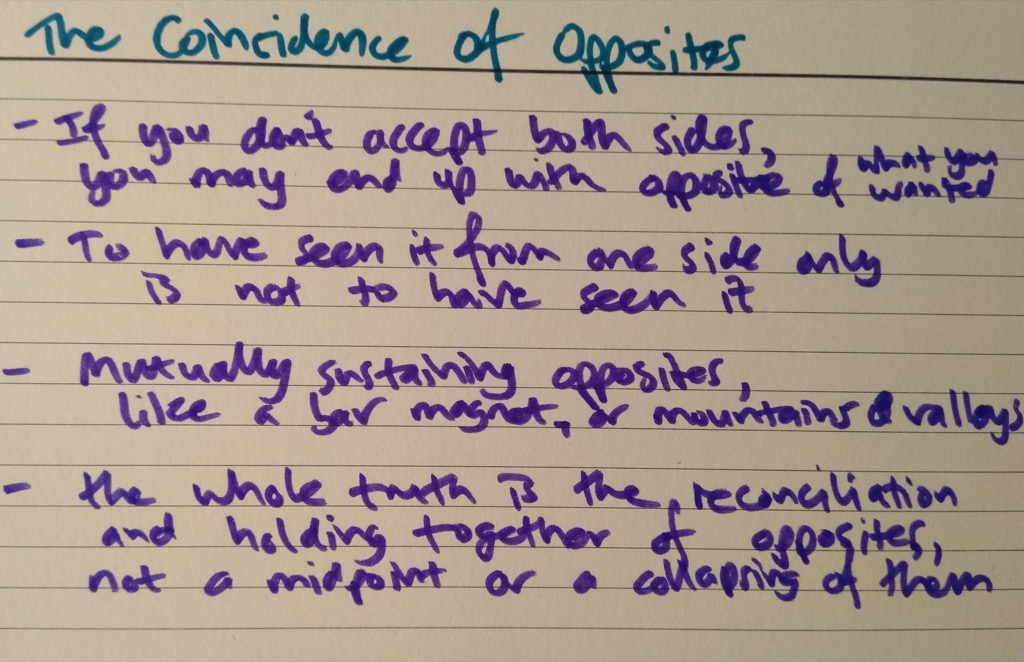 The Coincidence of Opposites
- If you don't accept both sides,
you may end up with opposite of what you wanted
- To have seen it from one side only
is not to have seen it
- Mutually sustaining opposites,
like a bar magnet, or mountains & valleys
- the whole truth is the reconciliation
and holding together of opposites,
not a midpoint or a collapsing of them